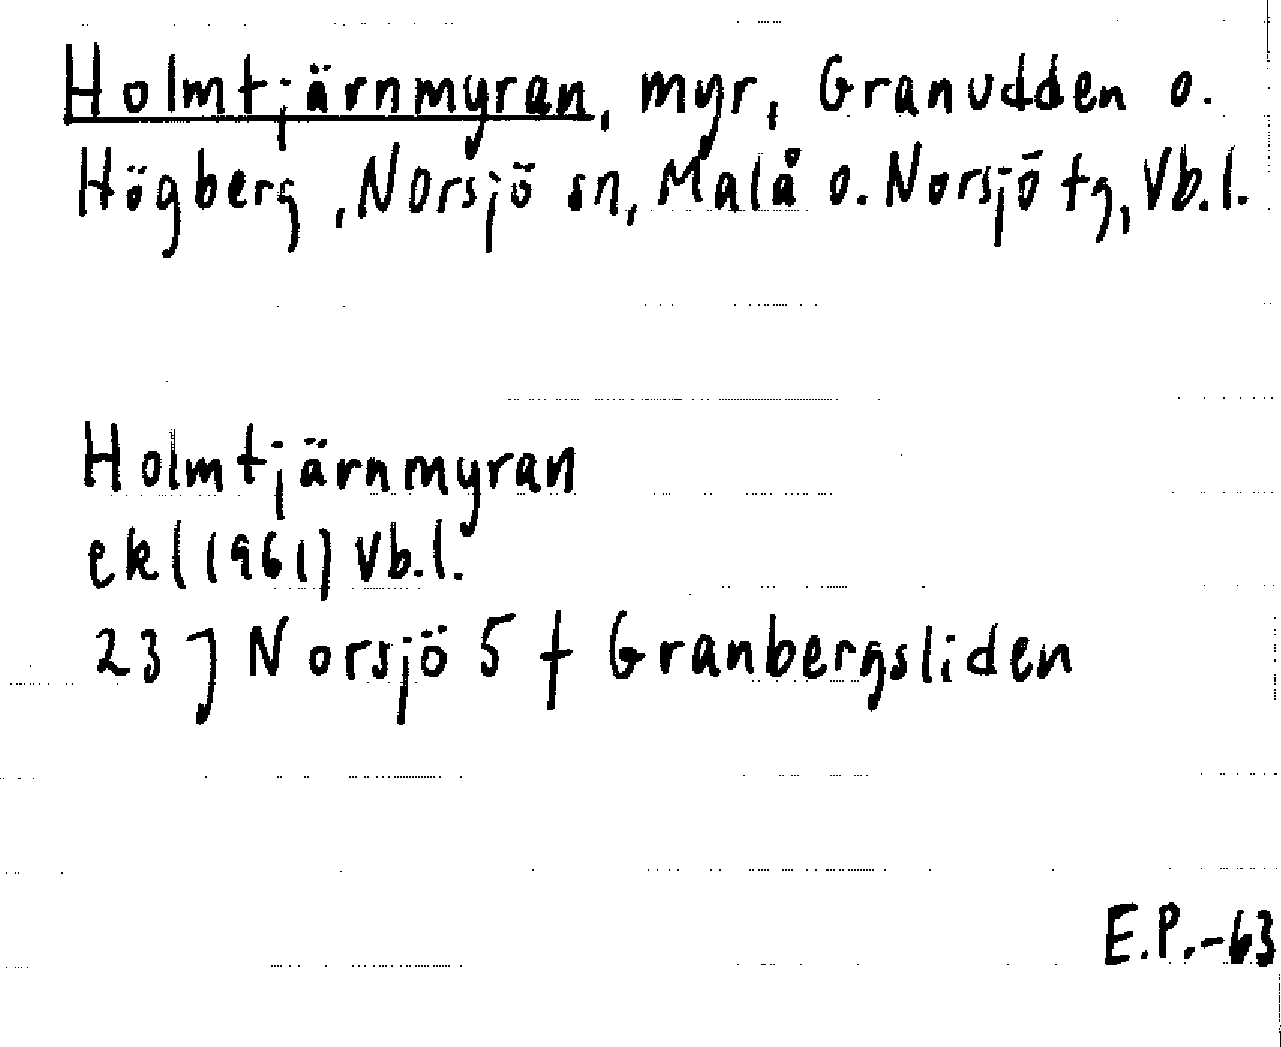 Holmtjärnmyran, myr, Granudden o.
Högberg, Norsjö sn, Malå o. Norsjö tg, Vb.l.
Holmtjärnmyran
ekl (1961) Vb.l.
23 J Norsjö 5 f Granbergsliden
E.P.-63